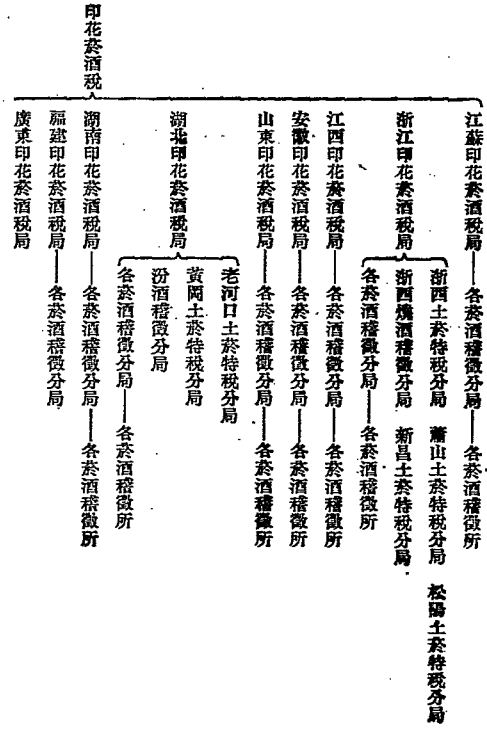 印花菸酒稅
江蘇印花菸酒稅局——各菸酒稽徵分局——各菸酒稽徵所
浙江印花菸酒稅局
浙西土菸特稅分局 蕭山土菸特稅分局 松陽土菸特稅分局
浙西燒酒稽徵分局 新昌土菸特稅分局
各菸酒稽徵分局——各菸酒稽徵所
江西印花菸酒稅局——各菸酒稽徵分局——各菸酒稽徵所
安徽印花菸酒稅局——各菸酒稽徵分局——各菸酒稽徵所
山東印花菸酒稅局——各菸酒稽徵分局——各菸酒稽徵所
湖北印花菸酒稅局
老河口土菸特稅分局
黃岡土菸特稅分局
汾酒稽徵分局
各菸酒稽徵分局——各菸酒稽徵所
湖南印花菸酒稅局——各菸酒稽徵分局——各菸酒稽徵所
福建印花菸酒稅局——各菸酒稽徵分局
廣東印花菸酒稅局